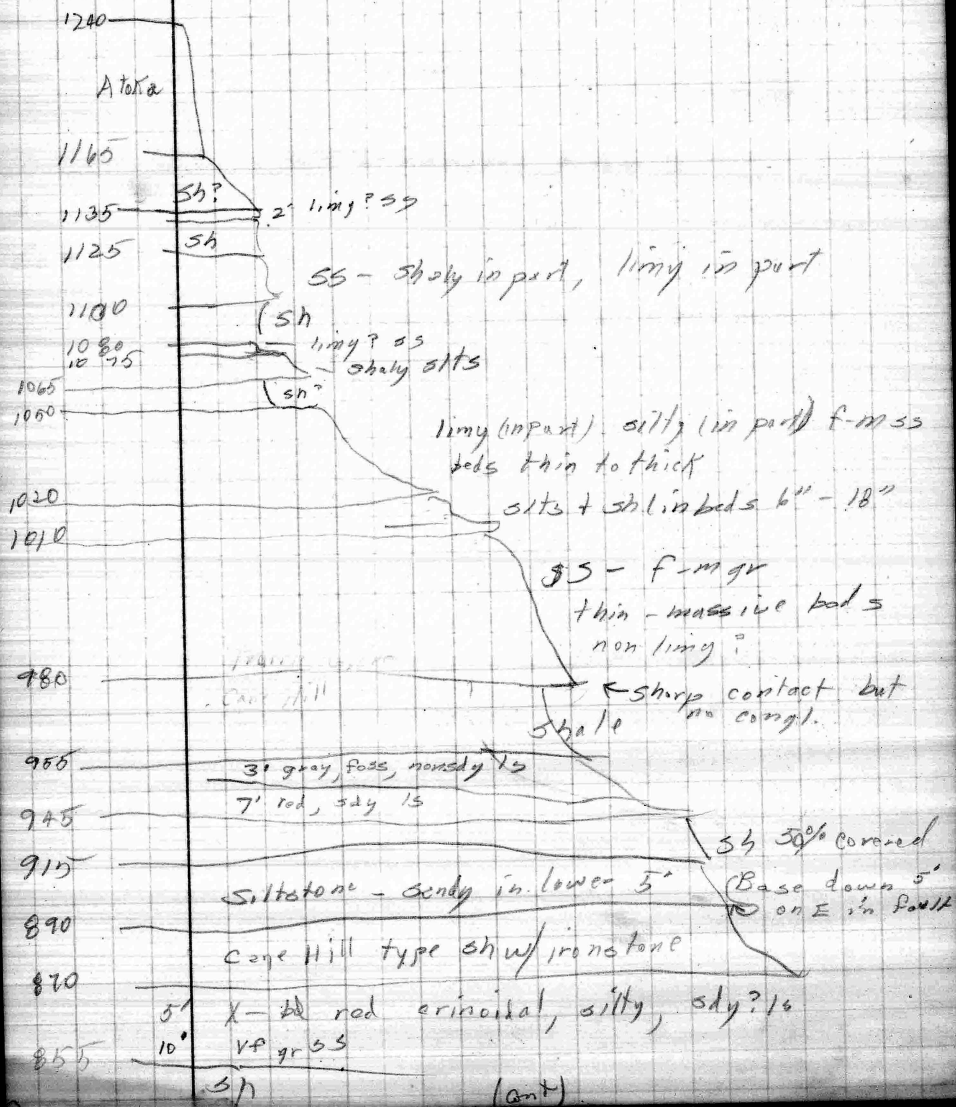 1240
Atoka
1165
Sh?
1135
2' limy? ss
sh
1125
SS - shaly in part, limy in part
1100
sh
1080
limy? ss
1075
shaly slts
1065
sh?
1050
limy (in part) silty (in part) f-m ss
beds thin to thick
1020
slts + sh in beds 6" - 18"
1010
SS - f-m gr
thin - massive beds
non limy?
980
Cane Hill
sharp contact but
no congl.
shale
955
3' gray, foss, nonsdy ls
7' red, sdy ls
945
sh 50% covered
915
Siltstone - sandy in lower 5'
(Base down 5'
on E in fault
890
Cane Hill type sh w/ ironstone
870
5' X-bd red crinoidal, silty, sdy? ls
10' vf gr ss
855
sh
(cont)